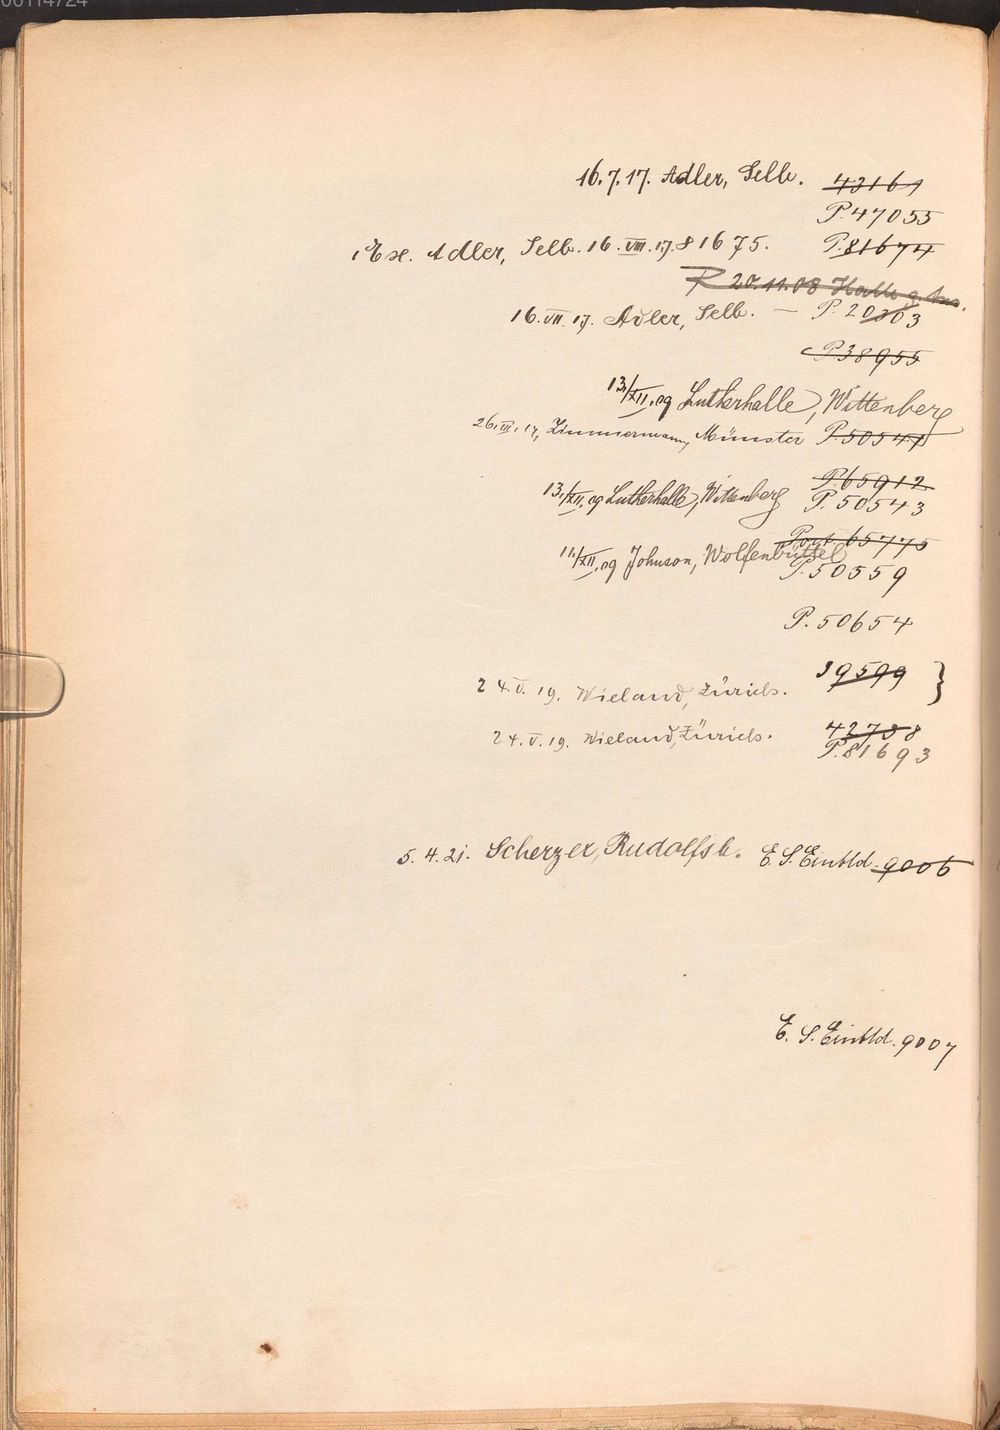 00114724
16.7.17. Adler, Selb. 43161
P. 47055
1 Ex. Adler, Selb. 16. VIII. 17. 81675. P. 81674
R 20.11.08 Halle
16. VII. 17. Adler, Selb. — P. 20303
P. 38955
13./XII. 09 Lutherhalle, Wittenberg
26. III. 14, Zimmermann, Münster P. 50541
P. 65912
13./XII. 09 Lutherhalle, Wittenberg P. 50543
65775
11./XII. 09 Johnson, Wolfenbüttel P. 50559
P. 50654
24. V. 19. Wieland, Zürich. 39599 }
24. V. 19. Wieland, Zürich. 42738
P. 81693
5. 4. 21. Scherzer, Rudolfsb. E. S. Einbld. 9006
E. S. Einbld. 9007